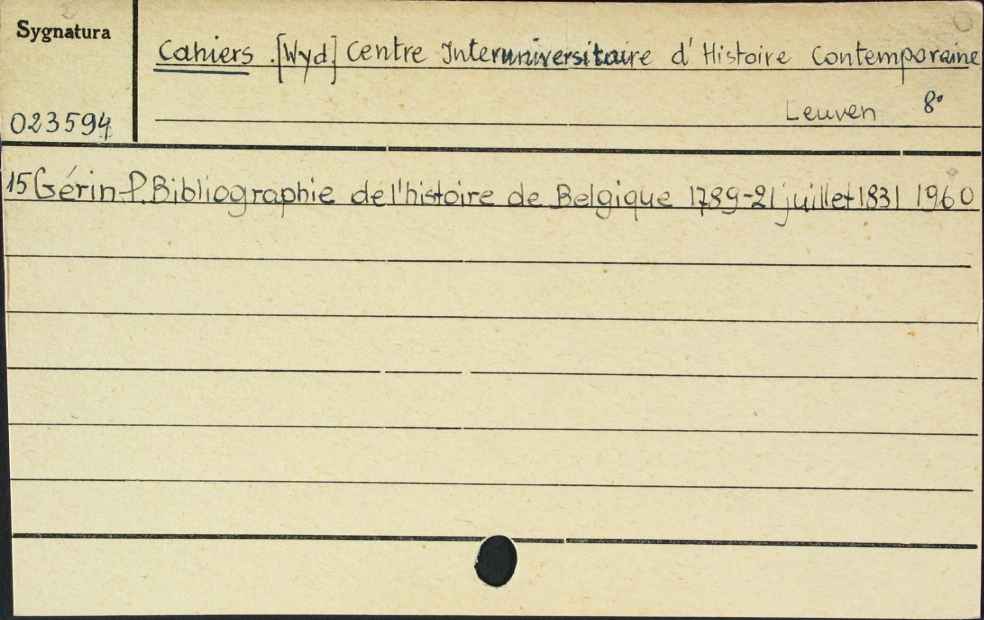 Sygnatura
Cahiers .[Wyd.] Centre Interuniversitaire d'Histoire Contemporaine
Leuven 8°
023594
15 Gérin P. Bibliographie de l'histoire de Belgique 1789-21 juillet 1831 1960